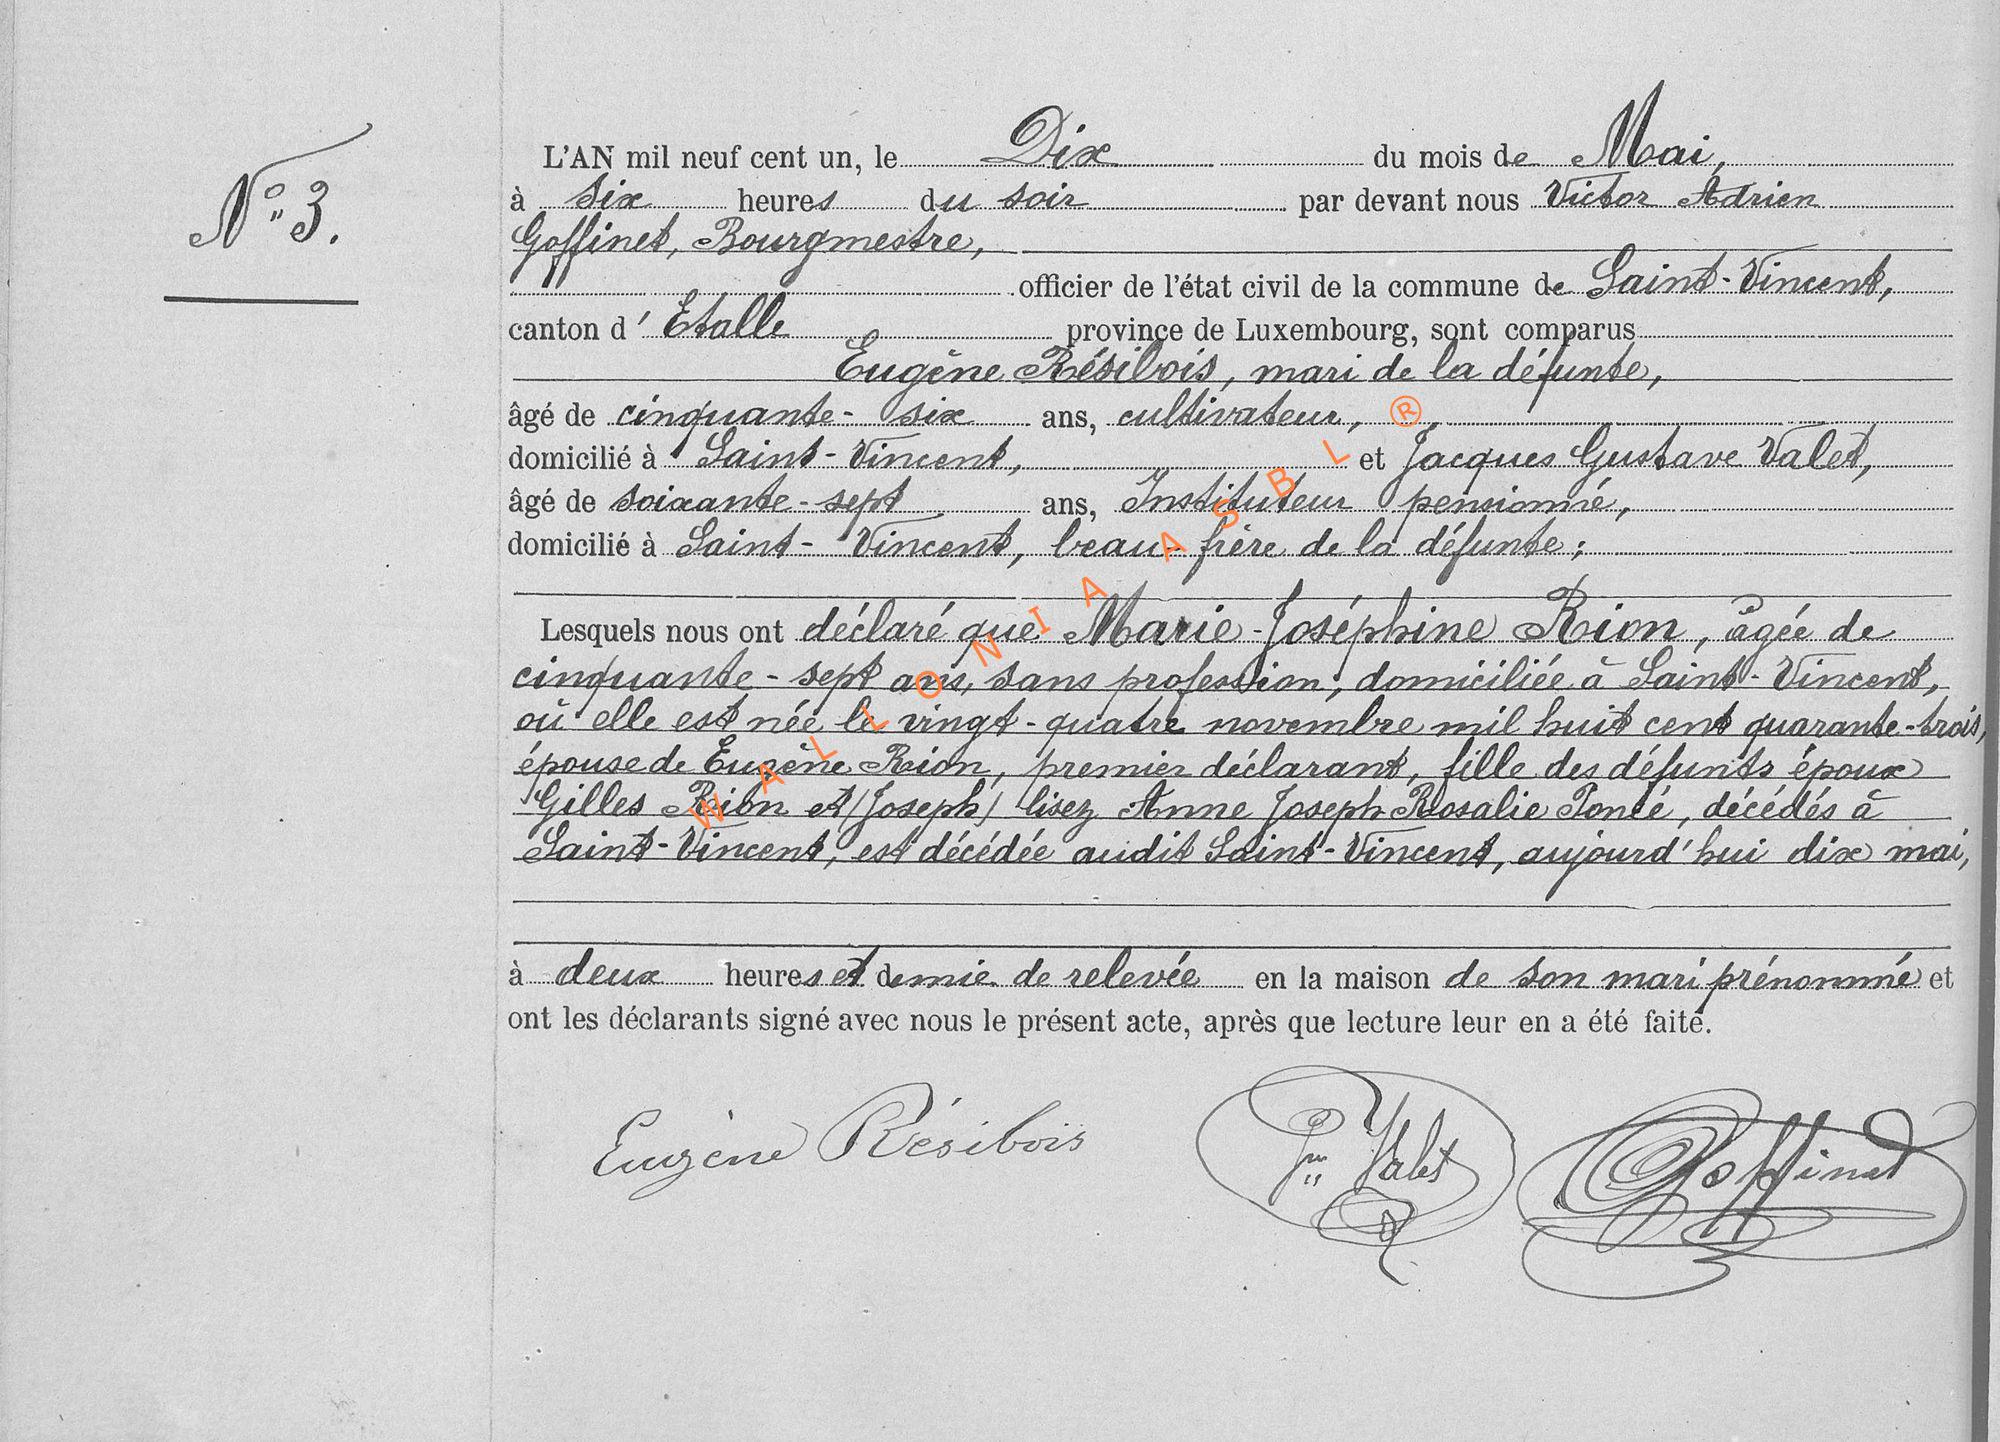 N° 3.
L'AN mil neuf cent un, le Dix du mois de Mai,
à six heures du soir par devant nous Victor Adrien
Goffinet, Bourgmestre,
officier de l'état civil de la commune de Saint-Vincent,
canton d'Etalle province de Luxembourg, sont comparus
Eugène Résibois, mari de la défunte,
âgé de cinquante-six ans, cultivateur,
domicilié à Saint-Vincent, et Jacques Gustave Valet,
âgé de soixante-sept ans, Instituteur pensionné,
domicilié à Saint-Vincent, beau-frère de la défunte;
Lesquels nous ont déclaré que Marie-Joséphine Rion, âgée de
cinquante-sept ans, sans profession, domiciliée à Saint-Vincent,
où elle est née le vingt-quatre novembre mil huit cent quarante-trois,
épouse de Eugène Rion, premier déclarant, fille des défunts époux
Gilles Rion et (Joseph) lisez Anne Joseph Rosalie Poncé, décédés à
Saint-Vincent, est décédée audit Saint-Vincent, aujourd'hui dix mai,
à deux heures et demie de relevée en la maison de son mari prénommé et
ont les déclarants signé avec nous le présent acte, après que lecture leur en a été faite.
Eugène Résibois Valet Goffinet
WALLONIA ASBL ®